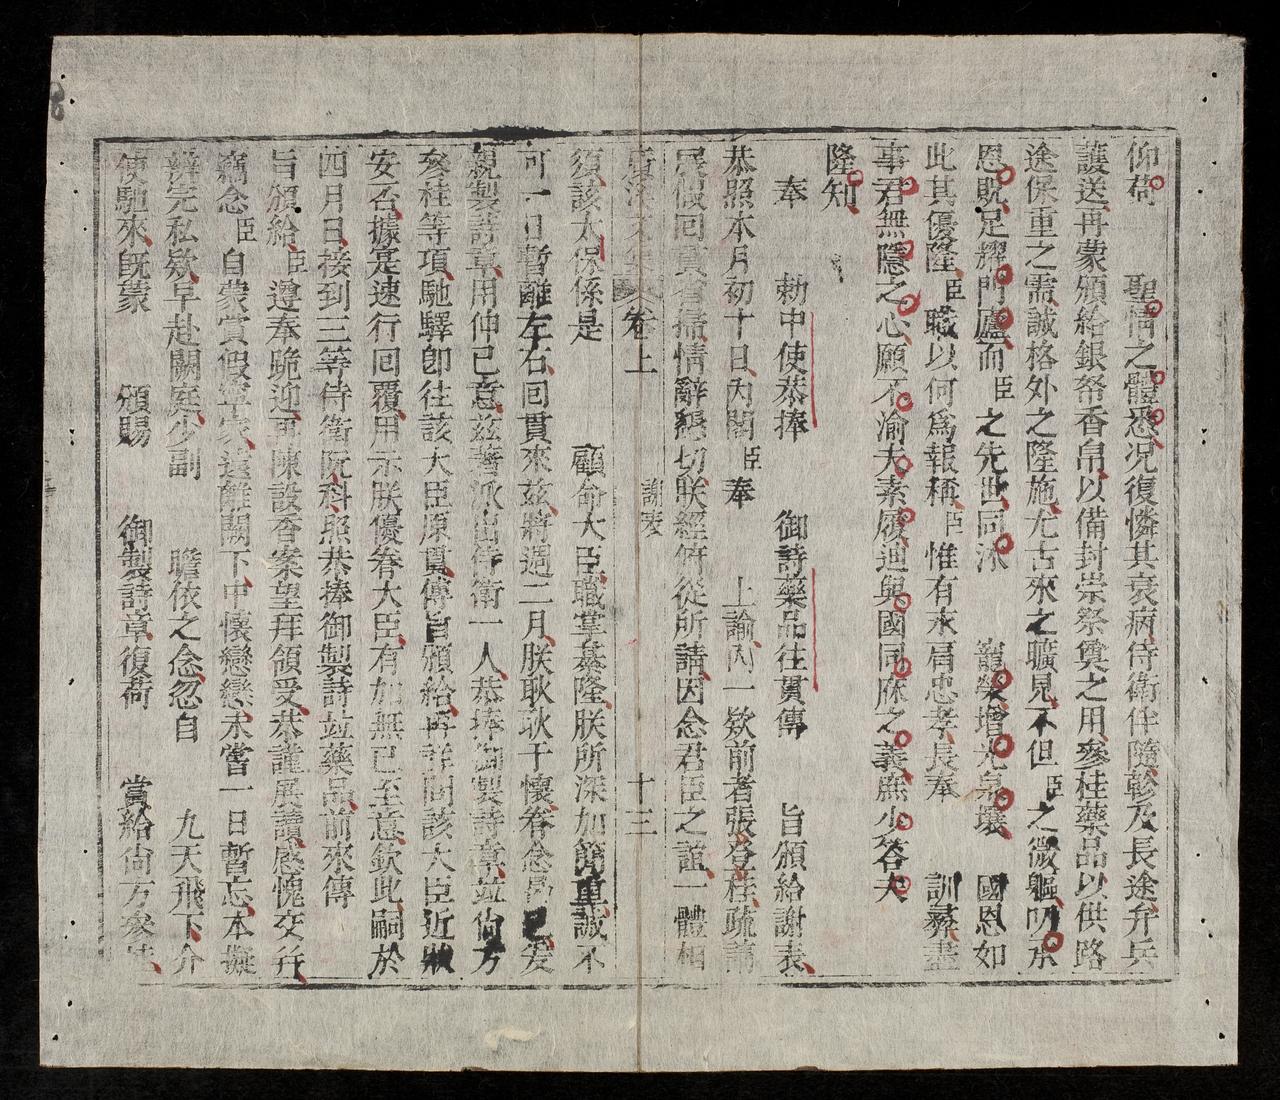 仰荷 聖情之體悉况復憐其衰病侍衛伴隨診及長途弁兵
護送再蒙頒給銀帑香帛以備封崇祭奠之用參桂藥品以供路
途保重之需誠格外之隆施尤古來之曠見不但臣之微軀叨承
恩既足耀門廬而臣之先世同沐 寵榮增光泉壤 國恩如
此其優隆臣職以何爲報稱臣惟有永肩忠孝長奉 訓彝盡
事君無隱之心願不渝夫素履迪與國同庥之義庶少答夫
隆知
奉 勅中使恭捧 御詩藥品往貫傳 旨頒給謝表
恭照本月初十日內閣臣奉 上諭內一欵前者張登桂疏請
展假回貫省掃情辭懇切朕經俯從所請因念君臣之誼一體相
文集 卷上 謝表 十三
須該太保係是 顧命大臣職掌綦隆朕所深加簡重誠不
可一日暫離左右回貫來茲將週二月朕耿耿于懷眷念曷已爰
親製詩章用伸己意茲著派出侍衛一人恭捧御製詩章並尙方
參桂等項馳驛卽往該大臣原貫傳旨頒給再詳問該大臣近狀
安否據寔速行回覆用示朕優眷大臣有加無已至意欽此嗣於
四月日接到三等侍衛阮科照恭捧御製詩並藥品前來傳
旨頒給臣遵奉跪迎再陳設香案望拜領受恭謹展讀感愧交幷
竊念臣自蒙賞假寧家遠離闕下中懷戀戀未嘗一日暫忘本擬
辦完私欵早赴闕庭少副 瞻依之念忽自 九天飛下介
使馳來旣蒙 頒賜 御製詩章復荷 賞給尙方參桂